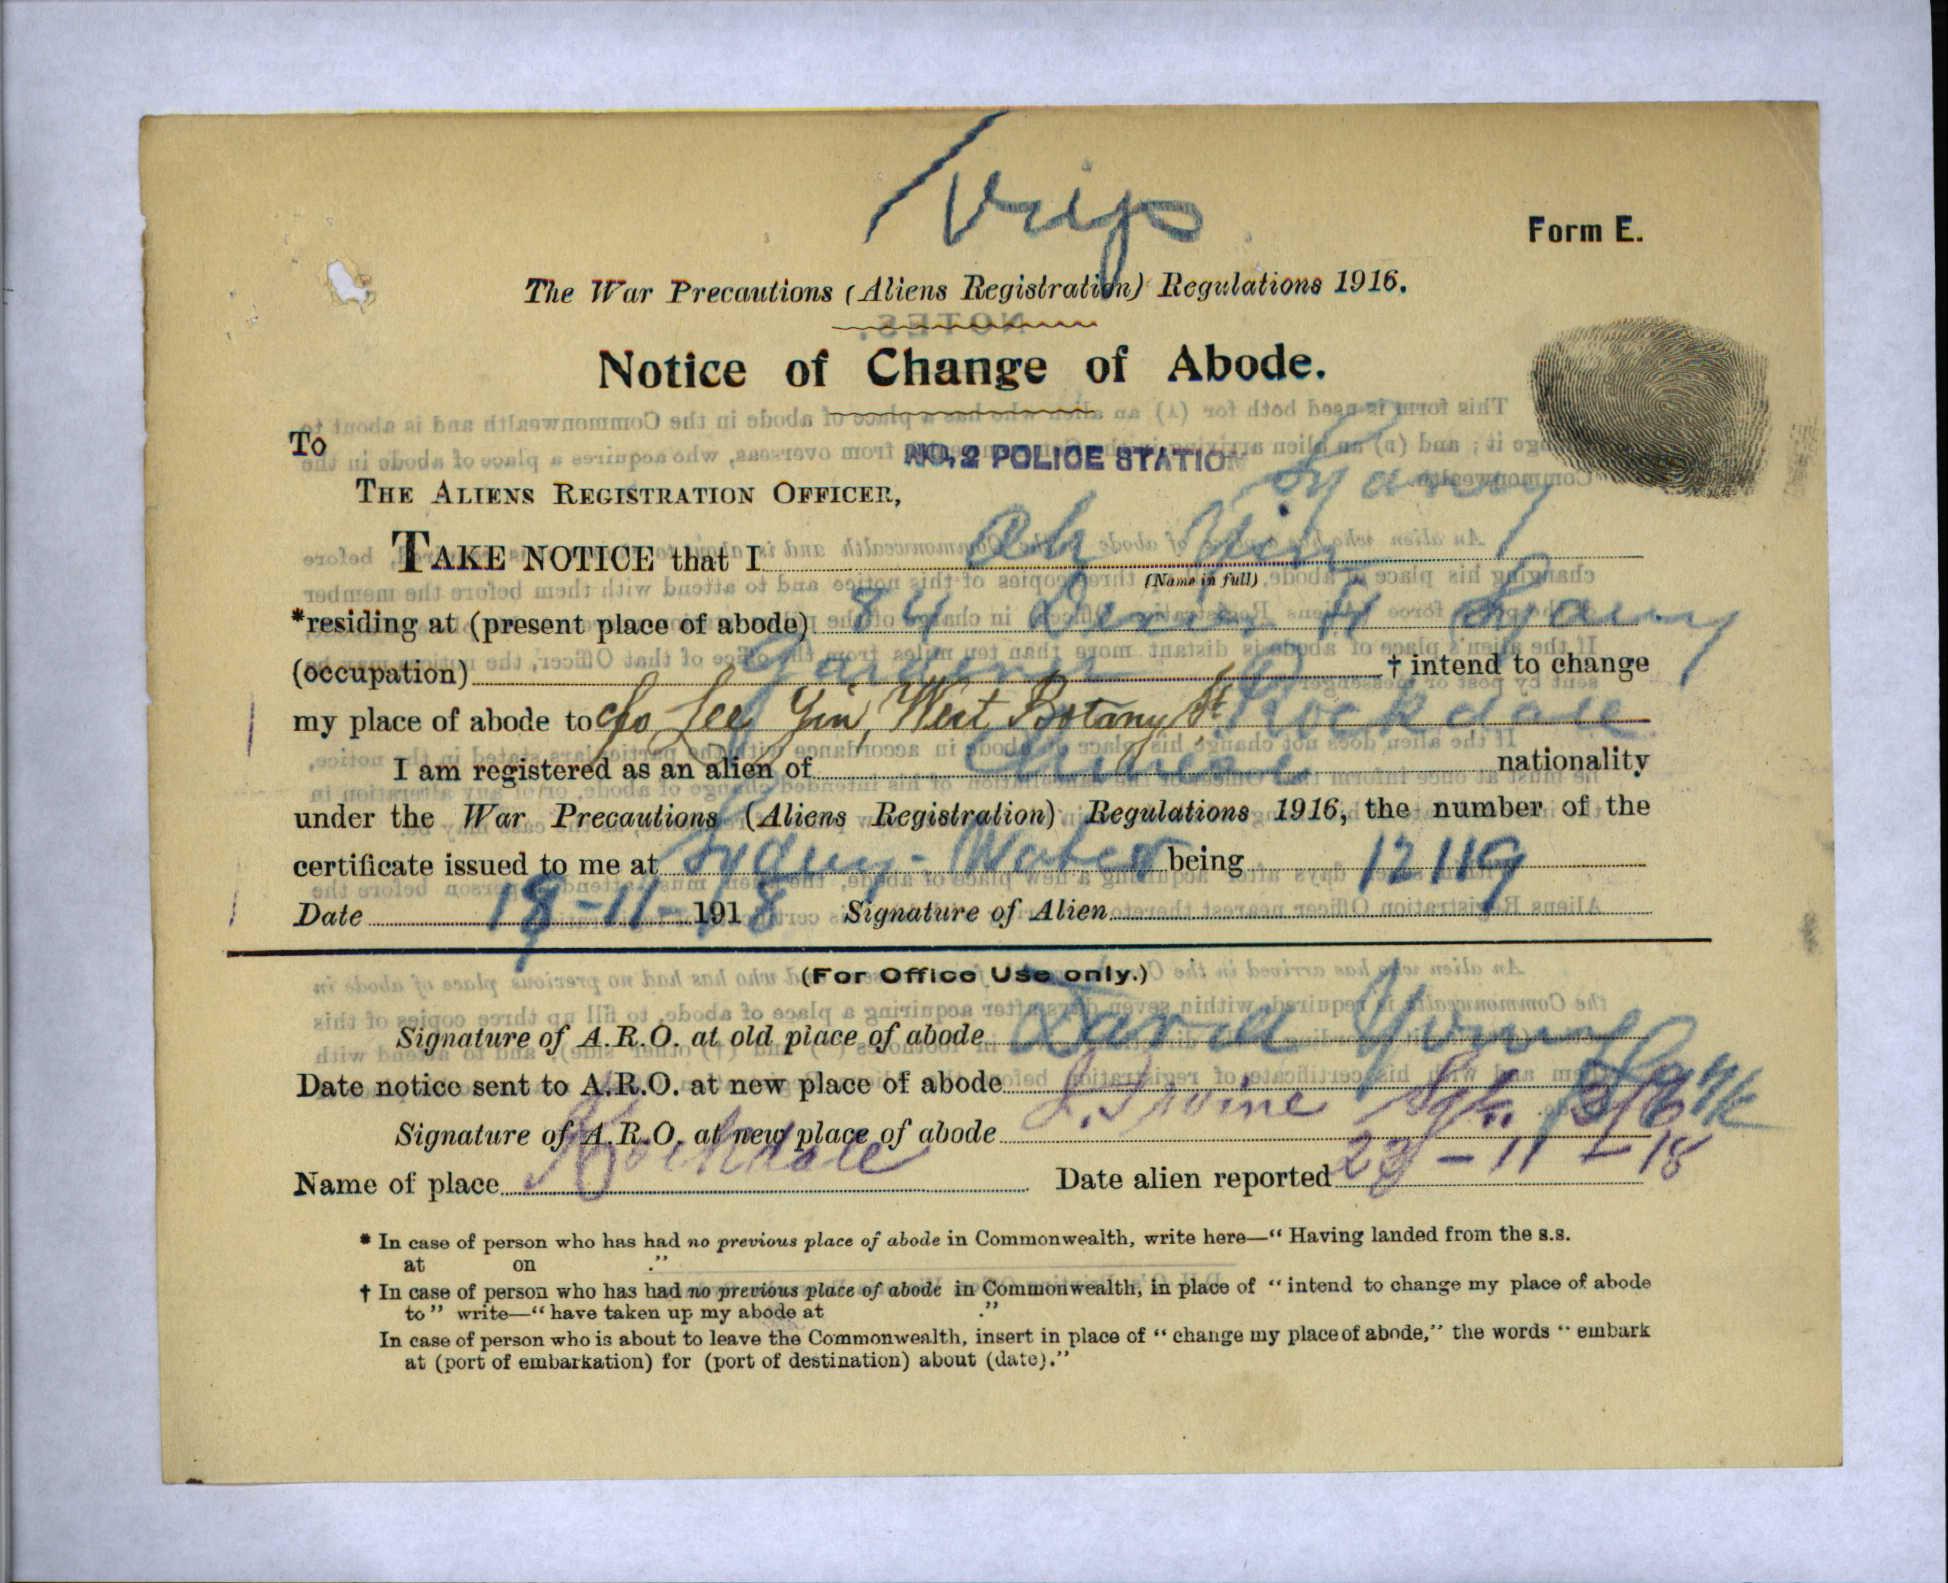 Form E.
The War Precautions (Aliens Registration) Regulations 1916.
Notice of Change of Abode.
To
NO. 2 POLICE STATION
Sydney
THE ALIENS REGISTRATION OFFICER,
TAKE NOTICE that I Ah
(Name in full)
*residing at (present place of abode) 84 St Sydney
(occupation) Gardener † intend to change
my place of abode to c/o Lee Yin, West Botany St. Rockdale
I am registered as an alien of Chinese nationality
under the War Precautions (Aliens Registration) Regulations 1916, the number of the
certificate issued to me at Sydney - Water being 12119
Date 19-11-1918 Signature of Alien
(For Office Use only.)
Signature of A.R.O. at old place of abode David
Date notice sent to A.R.O. at new place of abode
Signature of A.R.O. at new place of abode J. Irvine Sgt.
Name of place Rockdale Date alien reported 23-11-18
* In case of person who has had no previous place of abode in Commonwealth, write here—“ Having landed from the s.s.
at on .”
† In case of person who has had no previous place of abode in Commonwealth, in place of “ intend to change my place of abode
to ” write—“ have taken up my abode at .”
In case of person who is about to leave the Commonwealth, insert in place of “ change my place of abode,” the words “ embark
at (port of embarkation) for (port of destination) about (date).”